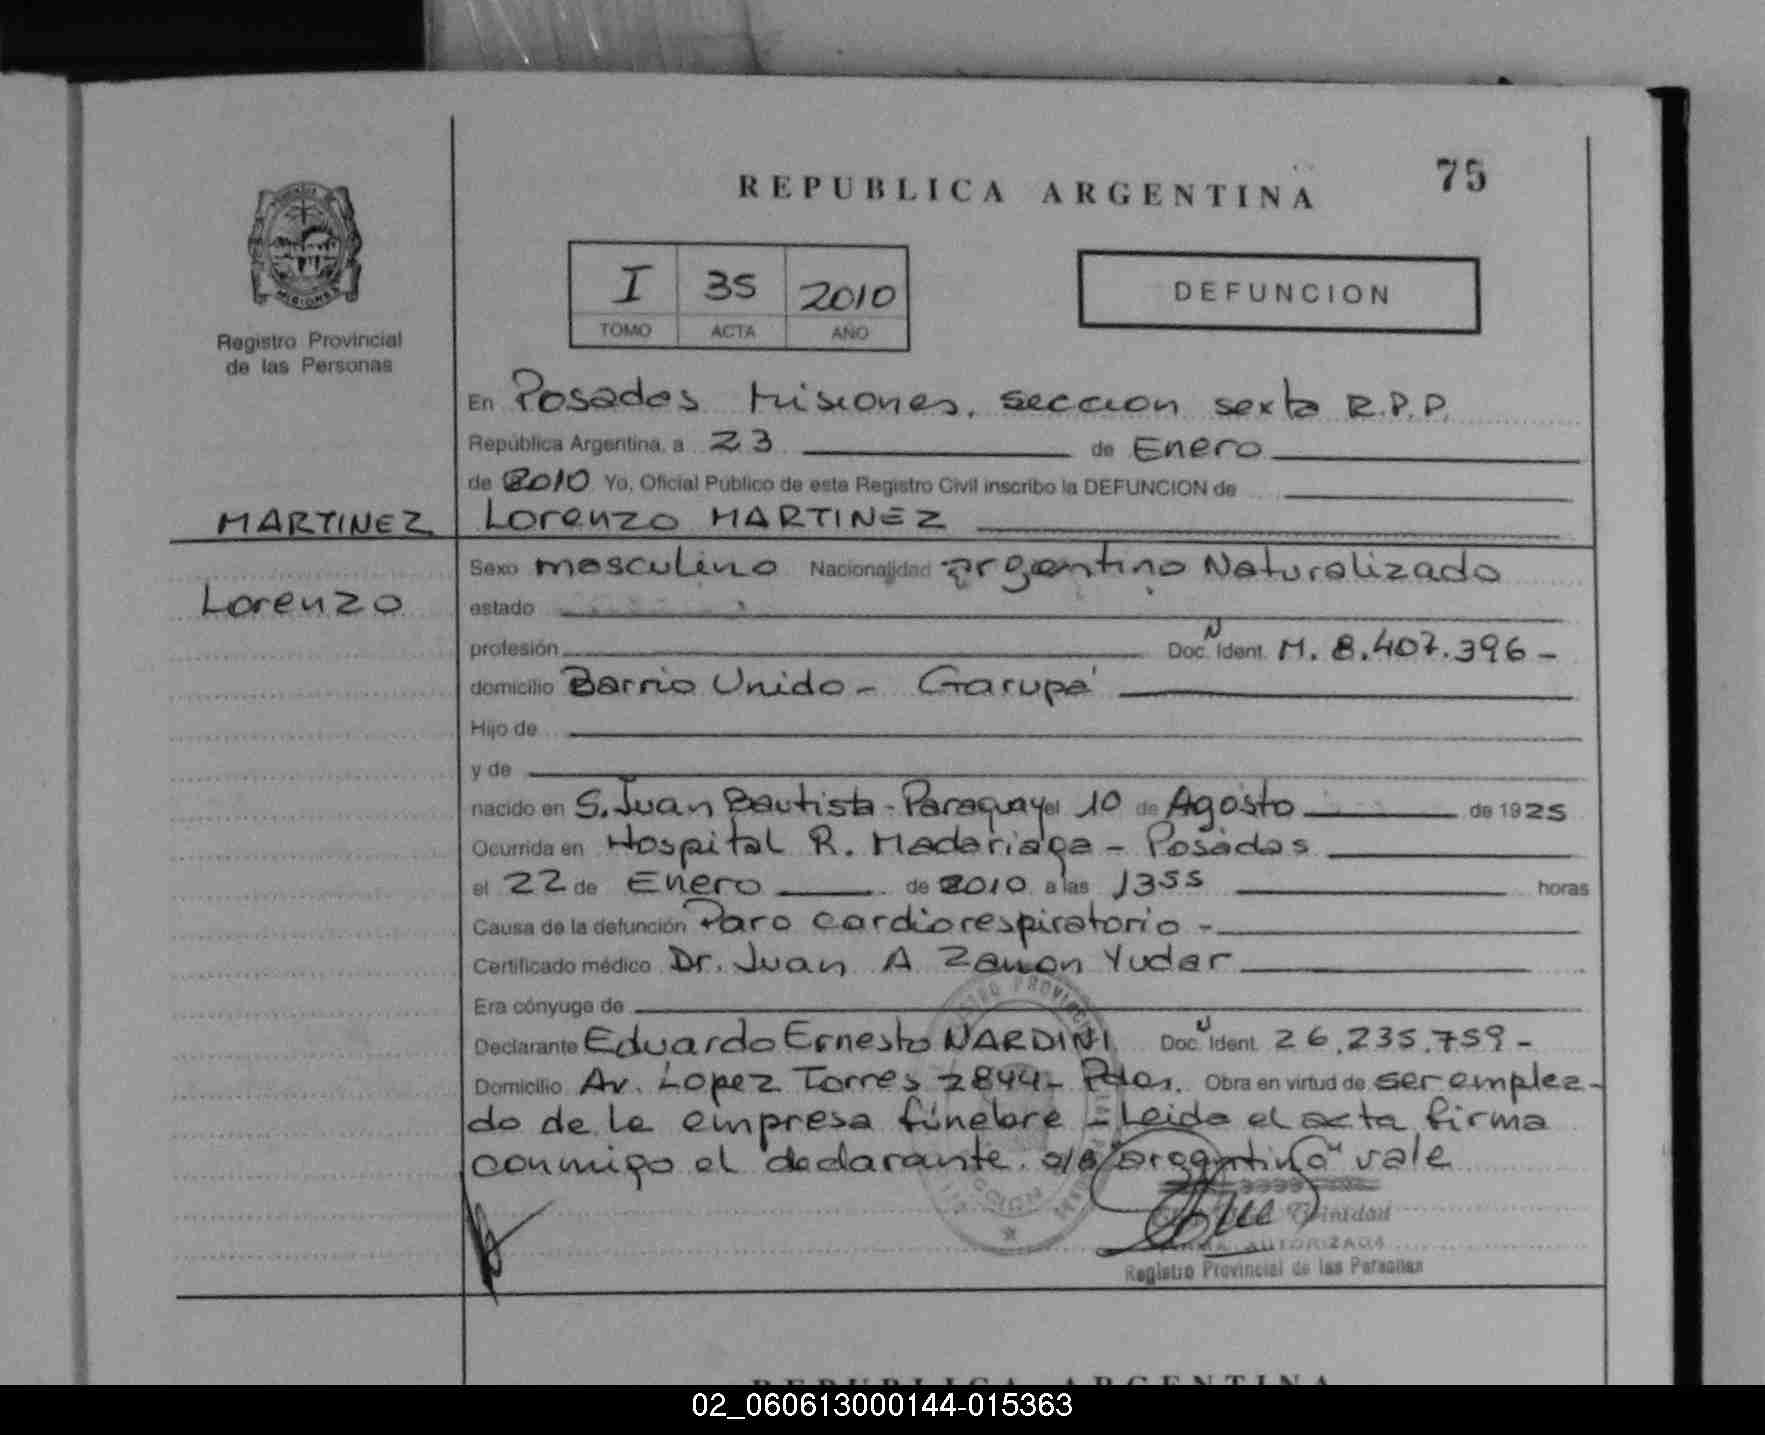 REPUBLICA ARGENTINA
75
MISIONES
Registro Provincial
de las Personas
I 35 2010
TOMO ACTA AÑO
DEFUNCION
En Posadas Misiones, seccion sexta R.P.P.
República Argentina, a 23 de Enero
de 2010 Yo, Oficial Público de este Registro Civil inscribo la DEFUNCION de
MARTINEZ Lorenzo MARTINEZ
Lorenzo
Sexo masculino Nacionalidad argentino Naturalizado
estado
profesión Doc. Ident. N M. 8.407.396-
domicilio Barrio Unido - Garupá
Hijo de
y de
nacido en S. Juan Bautista - Paraguay el 10 de Agosto de 1925
Ocurrida en Hospital R. Madariaga - Posadas
el 22 de Enero de 2010 a las 1355 horas
Causa de la defunción Paro cardiorespiratorio -
Certificado médico Dr. Juan A Zanon Yudar
Era cónyuge de
Declarante Eduardo Ernesto NARDINI Doc. Ident. N 26.235.759-
Domicilio Av. Lopez Torres 2844- Pdas. Obra en virtud de ser emplea-
do de la empresa fúnebre - Leida el acta firma
conmigo el declarante. s/b "argentino" vale
Trinidad
FIRMA AUTORIZADA
Registro Provincial de las Personas
REPUBLICA ARGENTINA
02_060613000144-015363